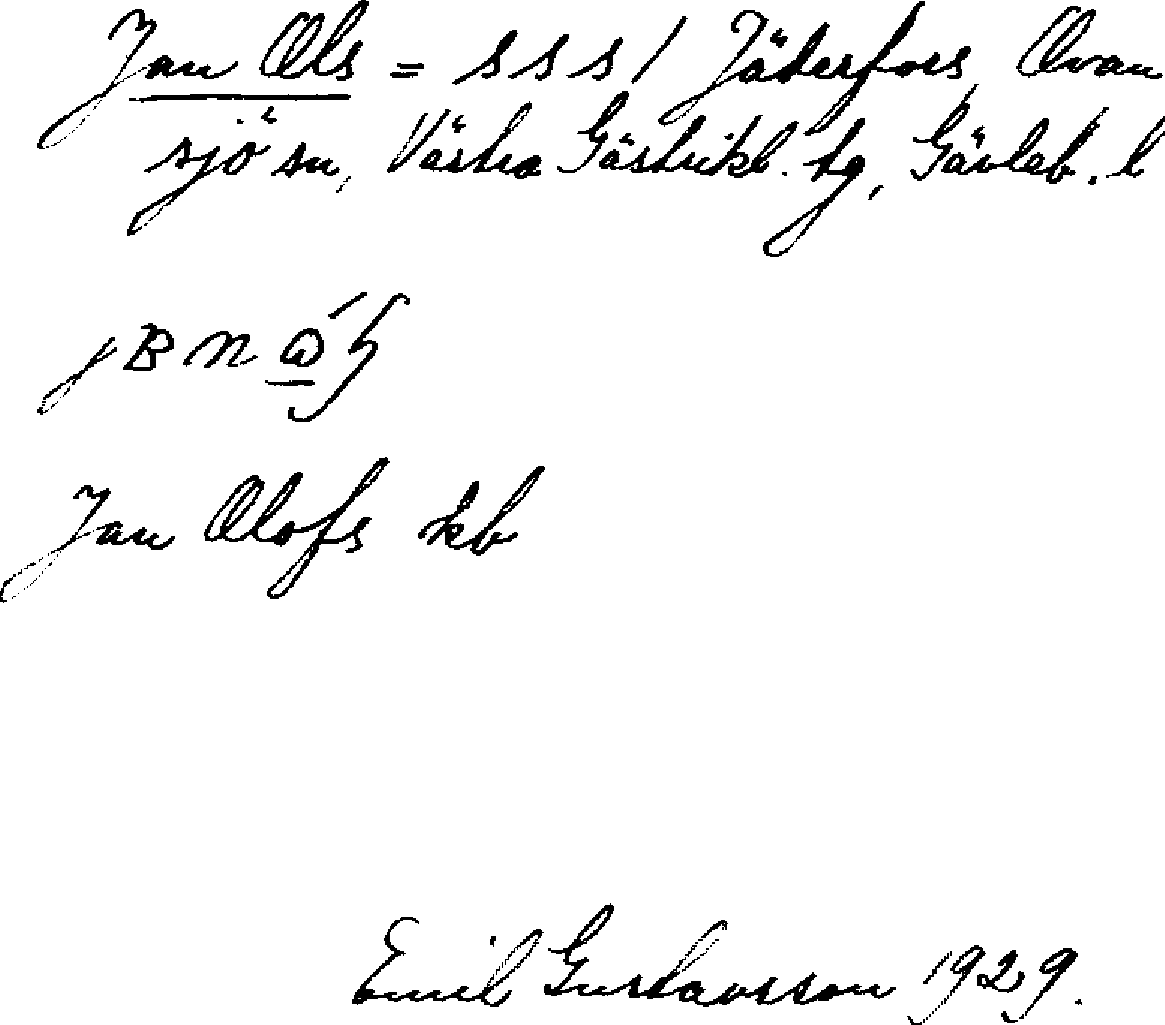 Jan Ols = s s s / Jäderfors, Ovan
sjö sn, Västra Gästrikl. hg, Gävleb. l
Jan Olofs kb
Emil Gustavsson 1929.